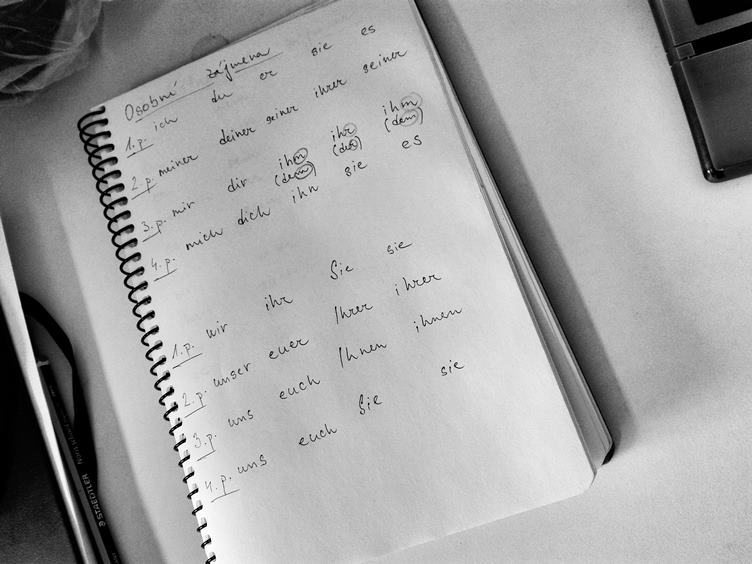 Osobní zájmena
1.p. ich du er sie es
2.p. meiner deiner seiner ihrer seiner
3.p. mir dir ihm ihr ihm
(dem) (der) (dem)
4.p. mich dich ihn sie es
1.p. wir ihr Sie sie
2.p. unser euer Ihrer ihrer
3.p. uns euch Ihnen ihnen
4.p. uns euch Sie sie
STAEDTLER